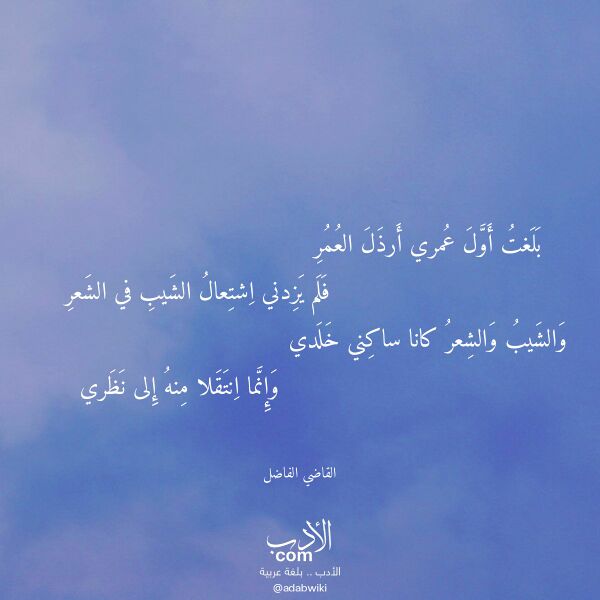 بَلَغتُ أَوَّلَ عُمري أَرذَلَ العُمُرِ
فَلَم يَزِدني اِشتِعالُ الشَيبِ في الشَعرِ
وَالشَيبُ وَالشِعرُ كانا ساكِني خَلَدي
وَإِنَّما اِنتَقَلا مِنهُ إِلى نَظَري
القاضي الفاضل
الأدب
com
الأدب .. بلغة عربية
@adabwiki